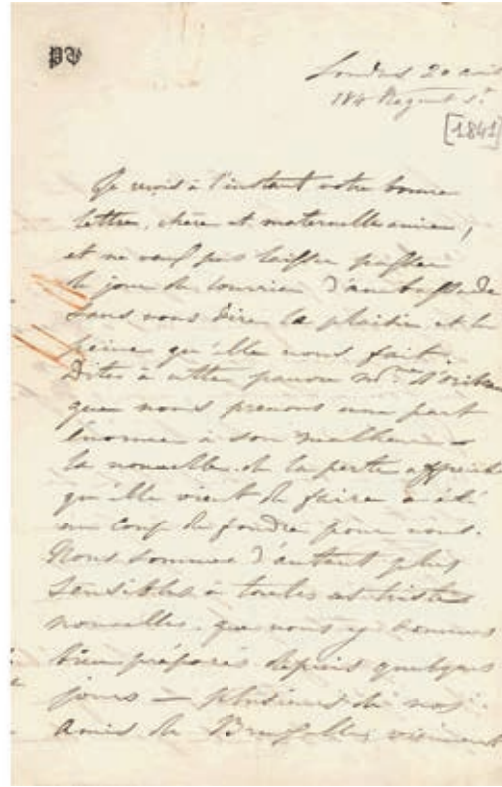 PV
Londres 20 avril
184 Regent St
[1841]
Je reçois à l'instant votre bonne
lettre, chère et maternelle amie,
et ne veux pas laisser passer
le jour du courrier d'ambassade
sans vous dire le plaisir et la
peine qu'elle nous fait.
Dites à cette pauvre Mme
que nous prenons une part
énorme à son malheur —
la nouvelle de la perte affreuse
qu'elle vient de faire a été
un coup de foudre pour nous.
Nous sommes d'autant plus
sensibles à toutes ces tristes
nouvelles que nous y sommes
bien préparés depuis quelques
jours — plusieurs de nos
amis de Bruxelles viennent